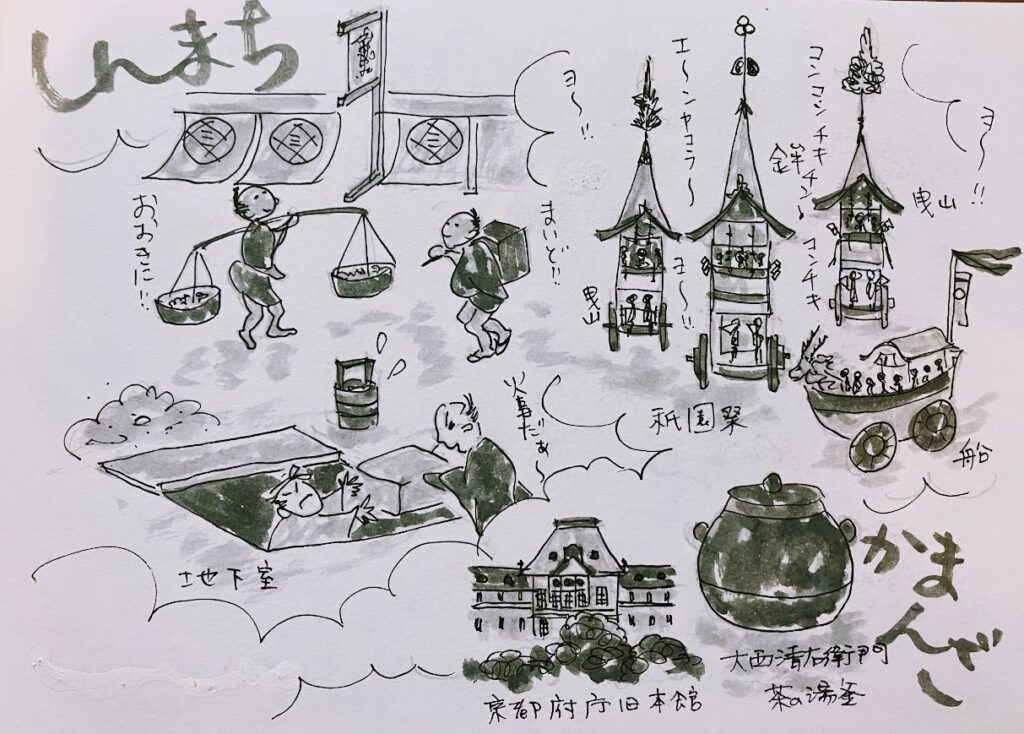 しんまち
三
三
三
おおきに!!
まいど!!
ヨ〜!!
エ〜ンヤコラ〜
ヨ〜!!
コンコンチキチン
コンチキ
ヨ〜!!
鉾
曳山
曳山
祇園祭
船
火事だぁ〜
地下室
京都府庁旧本館
大西清右衛門
茶の湯釜
かまんざ